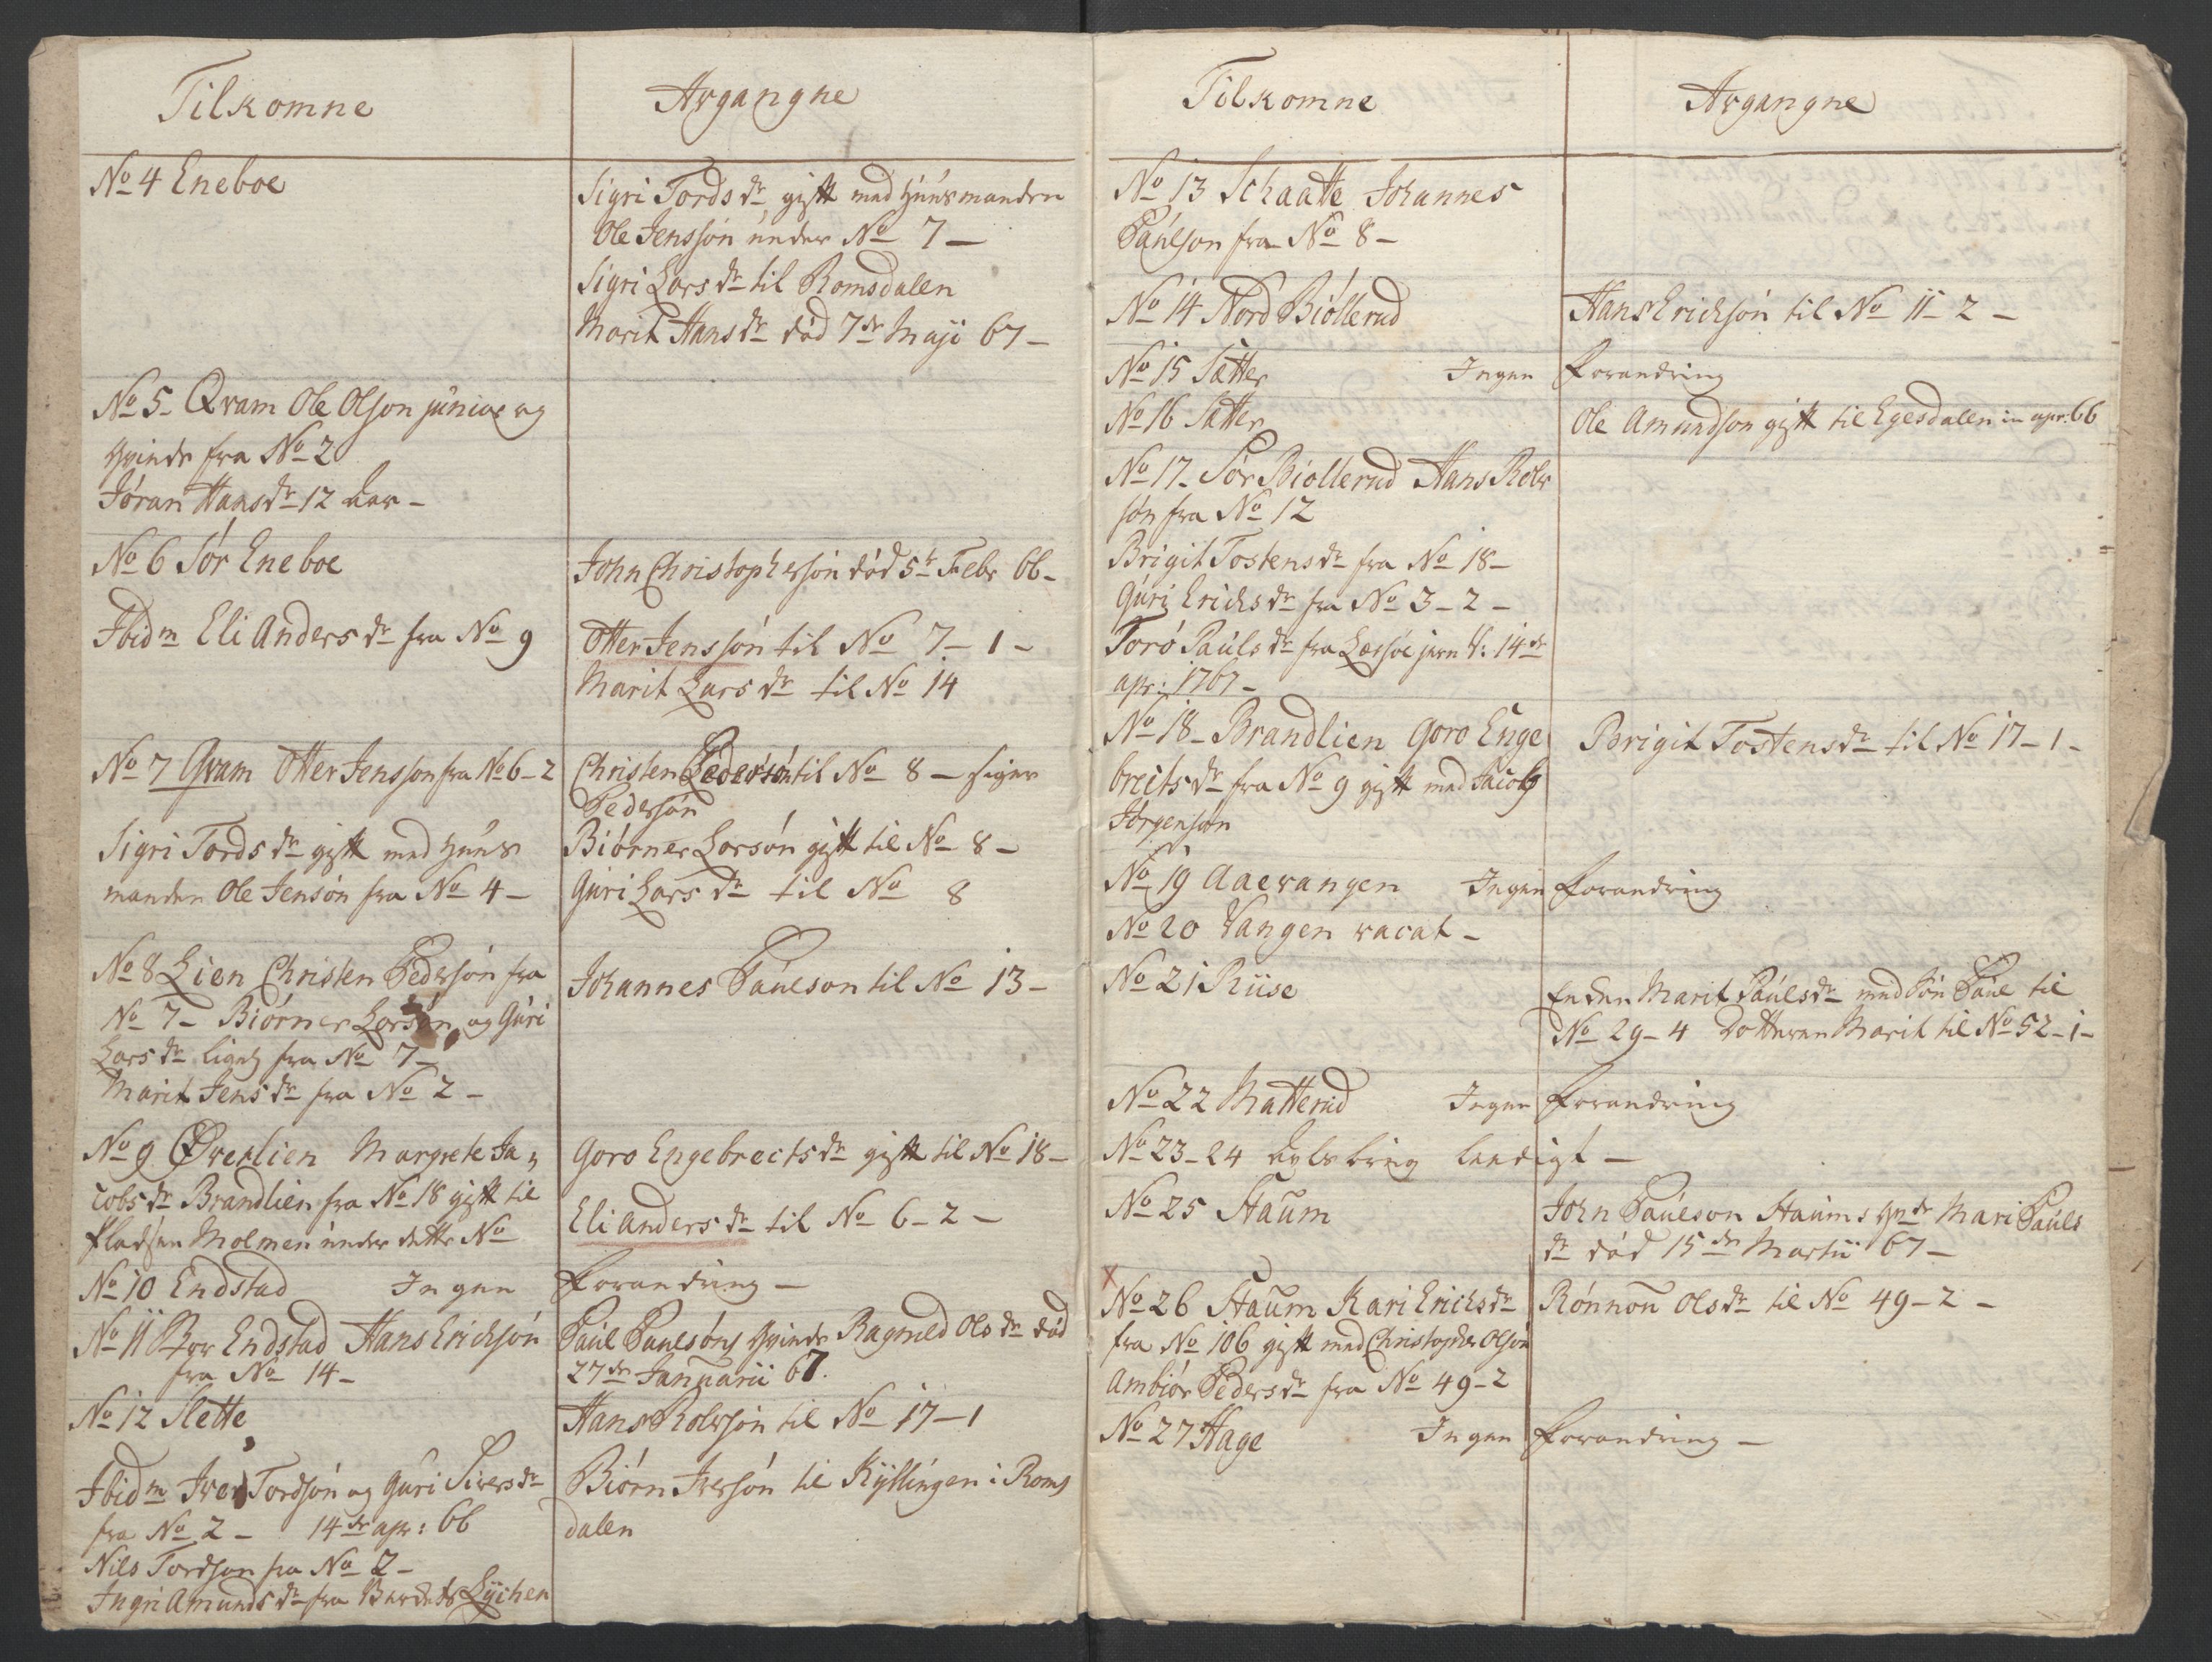 Tilkomne
Avgangne
No 4 Eneboe
Sigri Tords dr gift med Huusmanden
Ole Jenssøn under No 7 –
Sigri Lars dr til Romsdalen
Marit Hans dr død 7de Maji 67 –
No 5 – Qvam Ole Olson junior og
Qvinde fra No 2
Jøran Hansdr 12 aar –
No 6 Sør Eneboe
John Christophersøn død 5te Febr 66 –
Ibidm Eli Anders dr fra No 9
Otter Jenssøn til No 7 – 1 –
Marit Lars dr til No 14
No 7 Qvam Otter Jenssøn fra No 6 – 2
Christen Pedersøn til No 8 – siger
Pedersøn
Sigri Tords dr gift med Huus
manden Ole Jensøn fra No 4 –
Biørner Larsøn gift til No 8 –
Guri Lars dr til No 8
No 8 Lien Christen Pedersøn fra
No 7 – Biørner Larsøn og Guri
Lars dr ligel fra No 7 –
Marit Jens dr fra No 2 –
Johannes Paulson til No 13 –
No 9 Øverlien Margrete Ja,
cobs dr Brandlien fra No 18 gift til
Pladsen Molmen under dette No
Goro Engebrects dr gift til No 18 –
Eli Anders dr til No 6 – 2 –
No 10 Endstad Ingen Forandring –
No 11 Endstad Hans Erichsøn
fra No 14 –
Paul Paulsøns Qvinde Ragnild Ols dr død
27de Januarii 67.
No 12 Slette
Hans Rolvsøn til No 17 – 1
Ibidm Iver Tordsøn og Guri Sivers dr
fra No 2 – 14de apr: 66
Nils Tordson fra No 2 –
Ingri Amunds dr fra Lÿchen
Biørn Iversøn til Kÿllingen i Roms
dalen
Tilkomne
Avgangne
No 13 Schaatte Johannes
Paulson fra No 8 –
No 14 Nord Biøllerud
Hans Erichsøn til No 11 – 2 –
No 15 Sætter Ingen Forandring
No 16 Sætter
Ole Amundson gift til Egesdalen in apr: 66
No 17 – Sør Biøllerud Hans Rolv
søn fra No 12
Brigit Tostens dr fra No 18 –
Guri Erichs dr fra No 3 – 2 –
Torø Pauls dr fra Læsøe jern V: 14de
apr: 1767 –
No 18 – Brandlien Goro Enge
breits dr fra No 9 gift med Jacob
Jørgensøn
Brigit Tostens dr til No 17 – 1 –
No 19 Aaevangen Ingen Forandring
No 20 Vangen vacat –
No 21 Riise
Enken Marit Pauls dr med søn Paul til
No 29 – 4 Dotteren Marit til No 52 – 1 –
No 22 Matterud Ingen Forandring
No 23 – 24 leedigt –
No 25 Staum
John Paulson Staums Qvde Mari Pauls
dr død 15de Martii 67 –
No 26 Staum Kari Erichs dr
fra No 106 gift med Christopher Olsøn
Ambiør Peders dr fra No 49 – 2
Rønnou Ols dr til No 49 – 2 –
No 27 Hage Ingen Forandring –